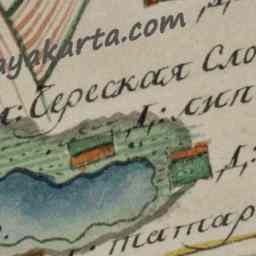 ayakarta.com
Береская Сло
Д: лип
Д:
татар